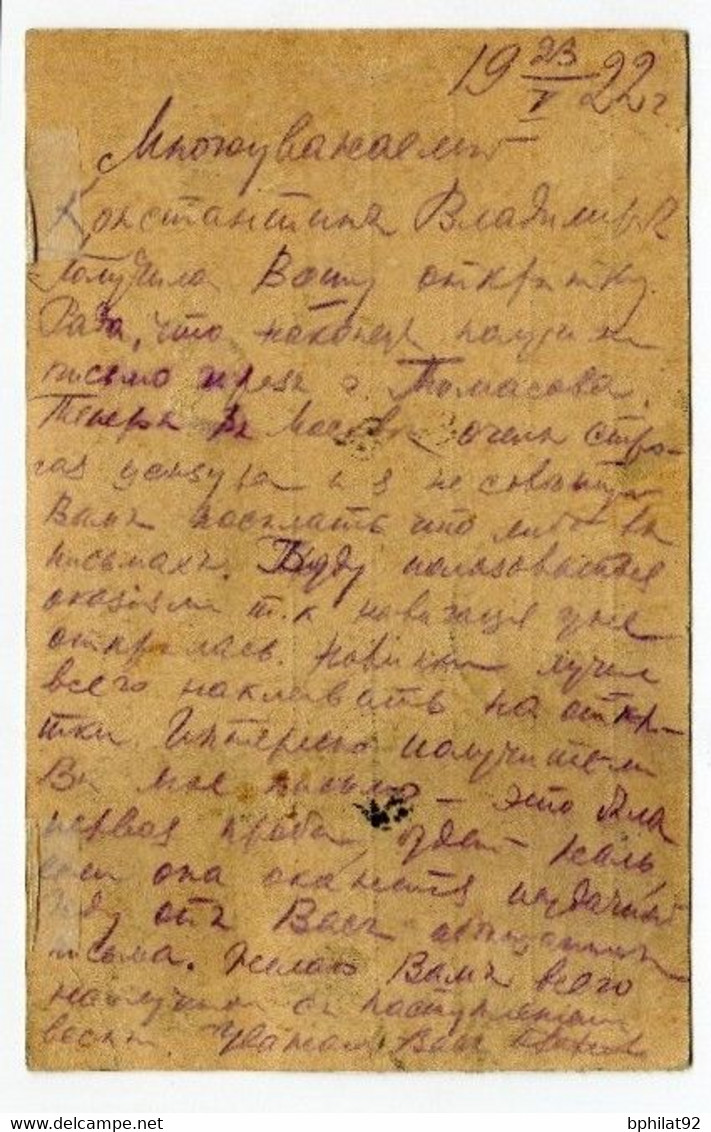 19 23/V 22 г.
Многоуважаемый
Константинъ Владимир.
Получила Вашу открытку.
Рада, что наконецъ получили
письмо черезъ г. Томасова.
Теперь въ Москвѣ очень стро-
гая цензура и я не совѣтую
Вамъ посылать что либо въ
письмахъ. Буду пользоваться
оказіями т.к. навигація уже
открылась. Новинки лучше
всего наклеивать на откры-
тки. Интересно получите ли
Вы мое письмо – это была
первая проба, будетъ жаль,
если она окажется неудачной
Жду отъ Васъ
письма. Желаю Вамъ всего
наилучш съ наступленіем
весны. Уважающ Васъ
bphilat92